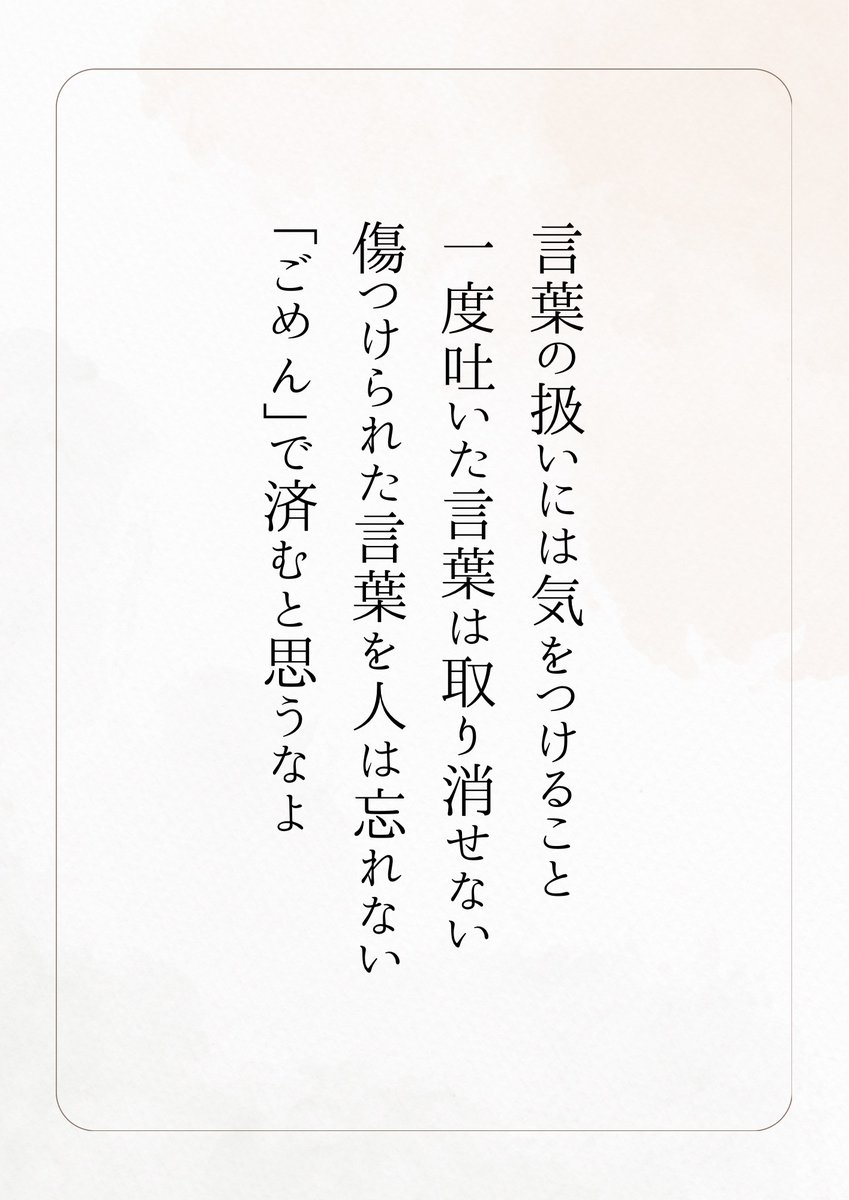 言葉の扱いには気をつけること
一度吐いた言葉は取り消せない
傷つけられた言葉を人は忘れない
「ごめん」で済むと思うなよ